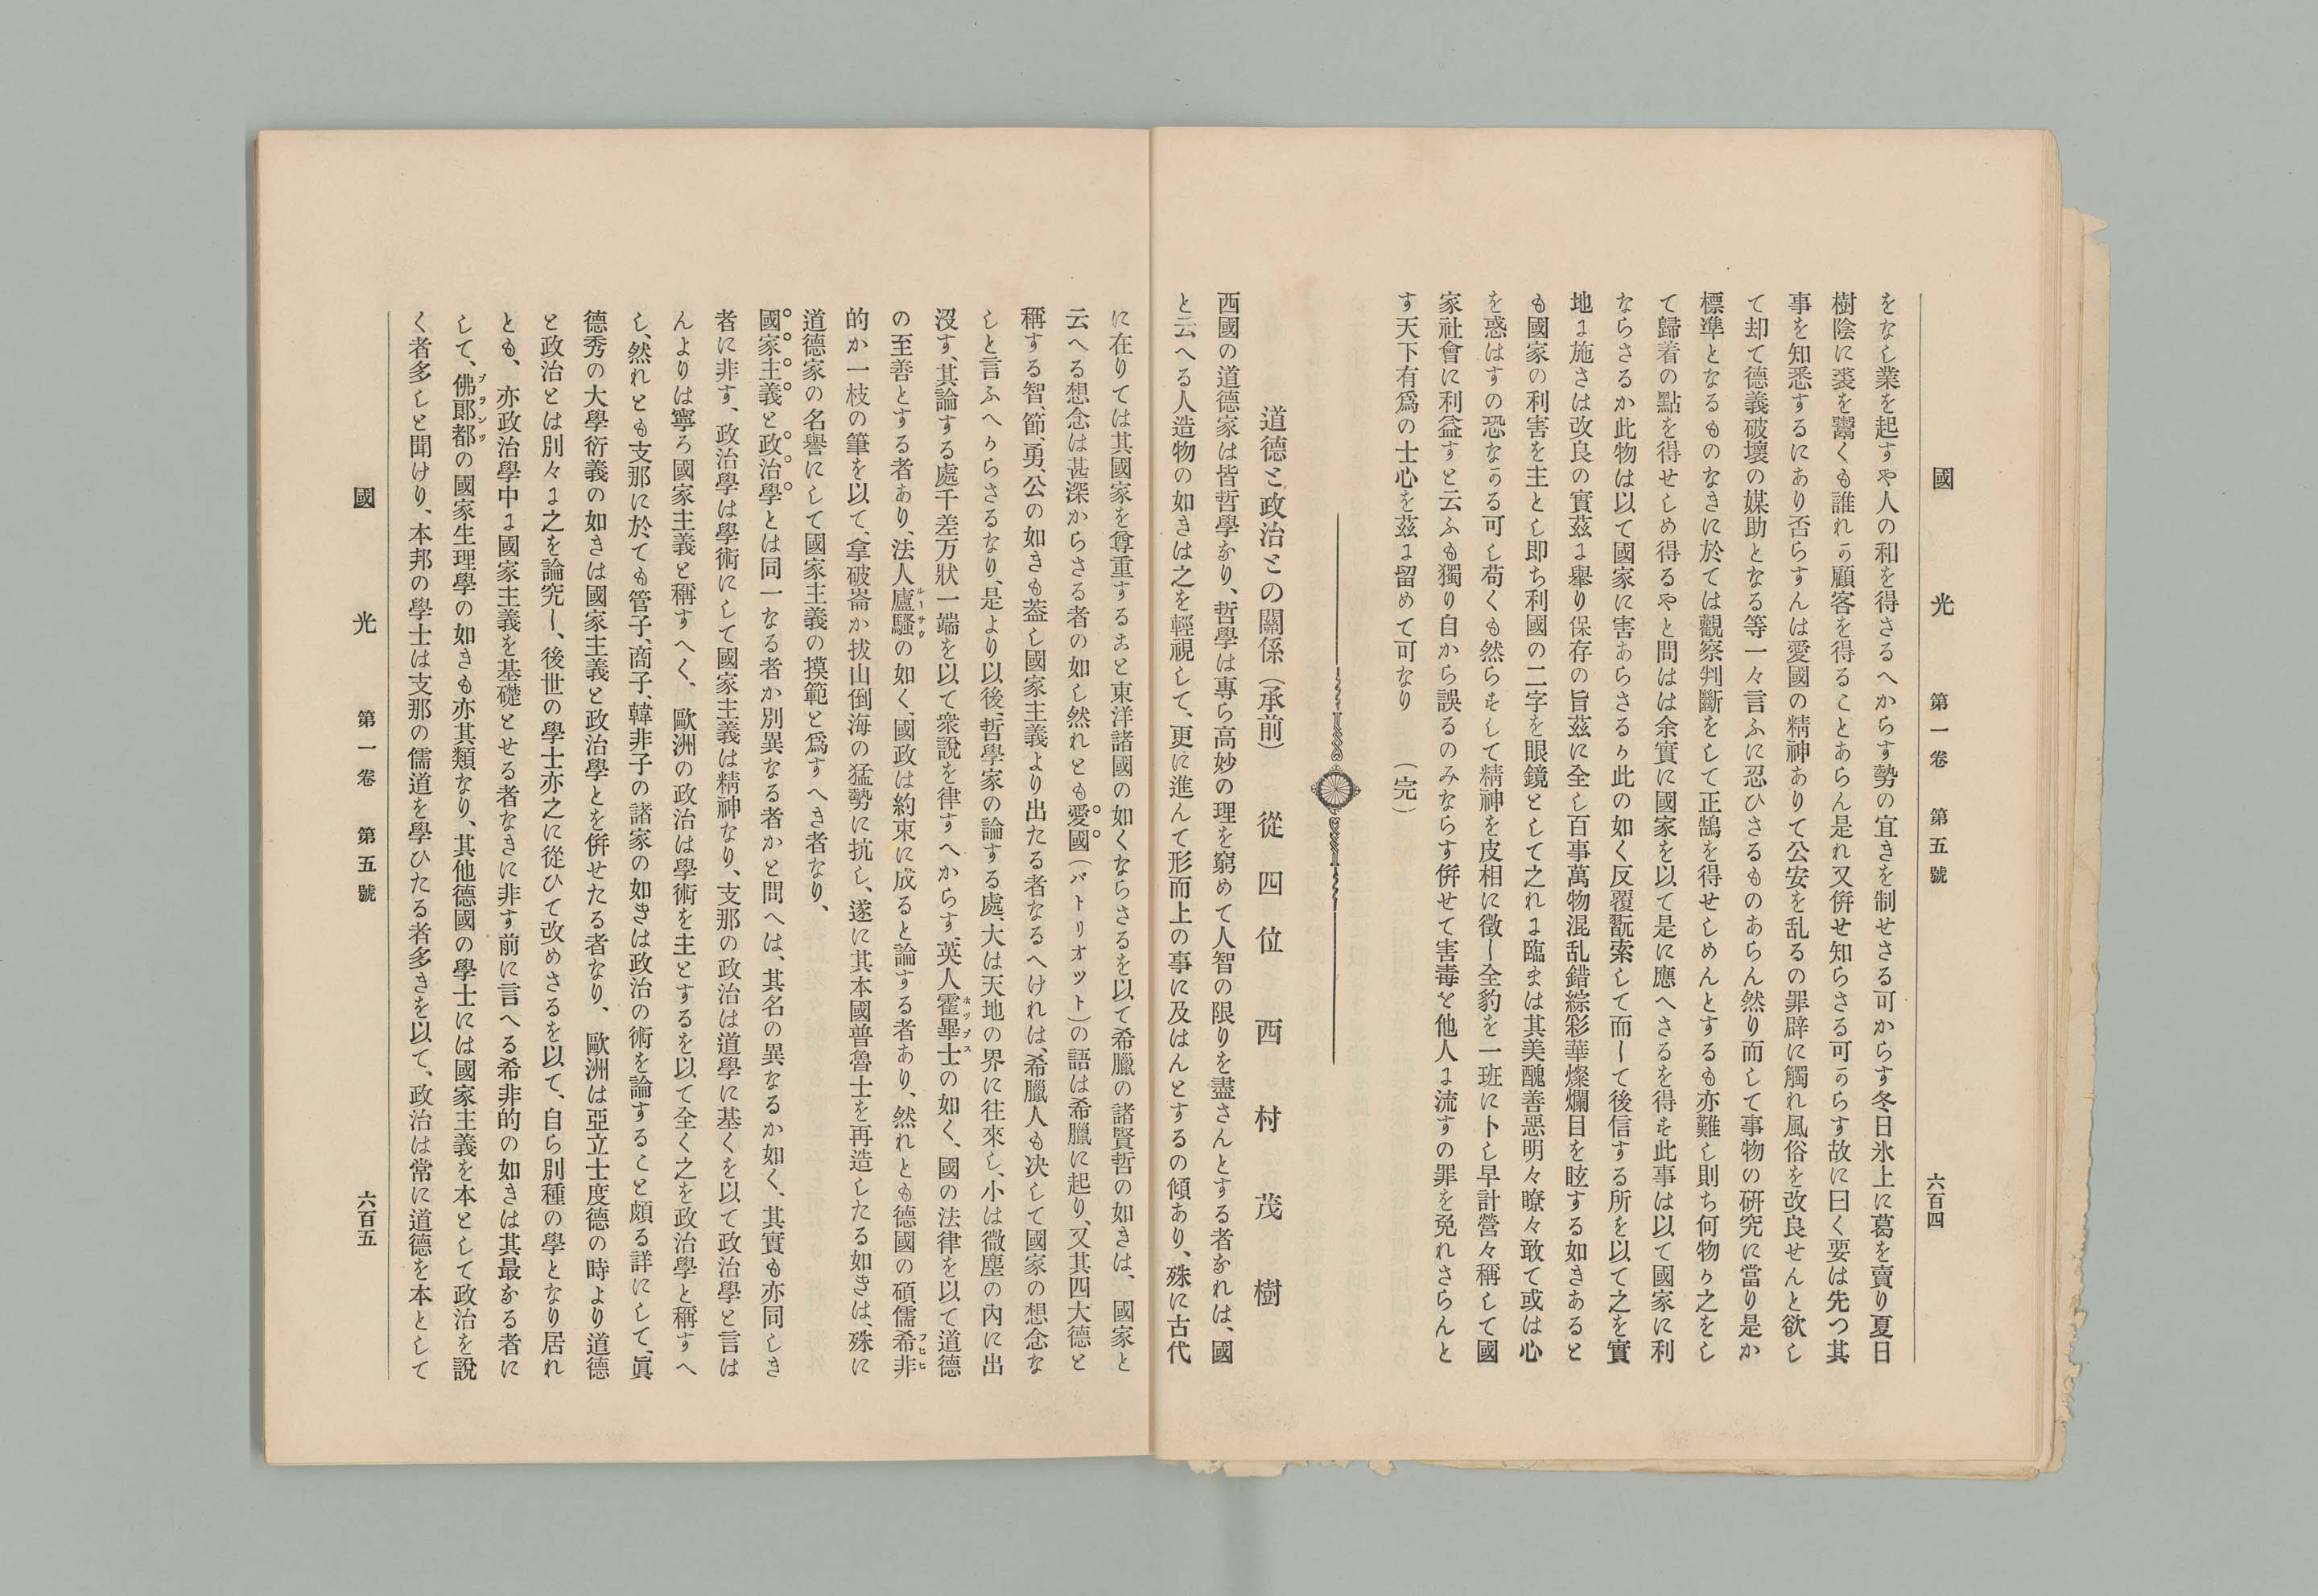 國光 第一卷 第五號 六百四
をなし業を起すや人の和を得さるへからす勢の宜きを制せさる可からす冬日氷上に葛を賣り夏日
樹陰に裘を鬻くも誰れか顧客を得ることあらん是れ又併せ知らさる可からす故に曰く要は先つ其
事を知悉するにあり否らすんは愛國の精神ありて公安を乱るの罪辟に觸れ風俗を改良せんと欲し
て却て德義破壞の媒助となる等一々言ふに忍ひさるものあらん然り而して事物の硏究に當り是か
標準となるものなきに於ては觀察判斷をして正鵠を得せしめんとするも亦難し則ち何物か之をし
て歸着の點を得せしめ得るやと問はは余實に國家を以て是に應へさるを得す此事は以て國家に利
ならさるか此物は以て國家に害あらさるか此の如く反覆翫索して而して後信する所を以て之を實
地に施さは改良の實茲に擧り保存の旨茲に全し百事萬物混乱錯綜彩華燦爛目を眩する如きあると
も國家の利害を主とし即ち利國の二字を眼鏡として之れに臨まは其美醜善惡明々瞭々敢て或は心
を惑はすの恐なかる可し苟くも然らすして精神を皮相に徵し全豹を一班にトし早計營々稱して國
家社會に利益すと云ふも獨り自から誤るのみならす併せて害毒を他人に流すの罪を免れさらんと
す天下有爲の士心を茲に留めて可なり (完)
道德と政治との關係(承前) 從四位 西村茂樹
西國の道德家は皆哲學なり、哲學は專ら高妙の理を窮めて人智の限りを盡さんとする者なれは、國
と云へる人造物の如きは之を輕視して、更に進んて形而上の事に及はんとするの傾あり、殊に古代
に在りては其國家を尊重すること東洋諸國の如くならさるを以て希臘の諸賢哲の如きは、國家と
云へる想念は甚深からさる者の如し然れとも愛國(パトリオット)の語は希臘に起り、又其四大德と
稱する智、節、勇、公の如きも蓋し國家主義より出たる者なるへけれは、希臘人も决して國家の想念な
しと言ふへからさるなり、是より以後、哲學家の論する處、大は天地の界に往來し、小は微塵の內に出
沒す、其論する處千差万狀一端を以て衆說を律すへからす、英人霍畢士ホッブスの如く、國の法律を以て道德
の至善とする者あり、法人廬騷ルーサウの如く、國政は約束に成ると論する者あり、然れとも德國の碩儒希非フヒヒ
的か一枝の筆を以て、拿破崙か拔山倒海の猛勢に抗し、遂に其本國普魯士を再造したる如きは、殊に
道德家の名譽にして國家主義の摸範と爲すへき者なり、
國家主義と政治學とは同一なる者か別異なる者かと問へは、其名の異なるか如く、其實も亦同しき
者に非す、政治學は學術にして國家主義は精神なり、支那の政治は道學に基くを以て政治學と言は
んよりは寧ろ國家主義と稱すへく、歐洲の政治は學術を主とするを以て全く之を政治學と稱すへ
し、然れとも支那に於ても管子、商子、韓非子の諸家の如きは政治の術を論すること頗る詳にして、眞
德秀の大學衍義の如きは國家主義と政治學とを併せたる者なり、歐洲は亞立士度德の時より道德
と政治とは別々に之を論究し、後世の學士亦之に從ひて改めさるを以て、自ら別種の學となり居れ
とも、亦政治學中に國家主義を基礎とせる者なきに非す前に言へる希非的の如きは其最なる者に
して、佛郞都フランツの國家生理學の如きも亦其類なり、其他德國の學士には國家主義を本として政治を說
く者多しと聞けり、本邦の學士は支那の儒道を學ひたる者多きを以て、政治は常に道德を本として
國光 第一卷 第五號 六百五